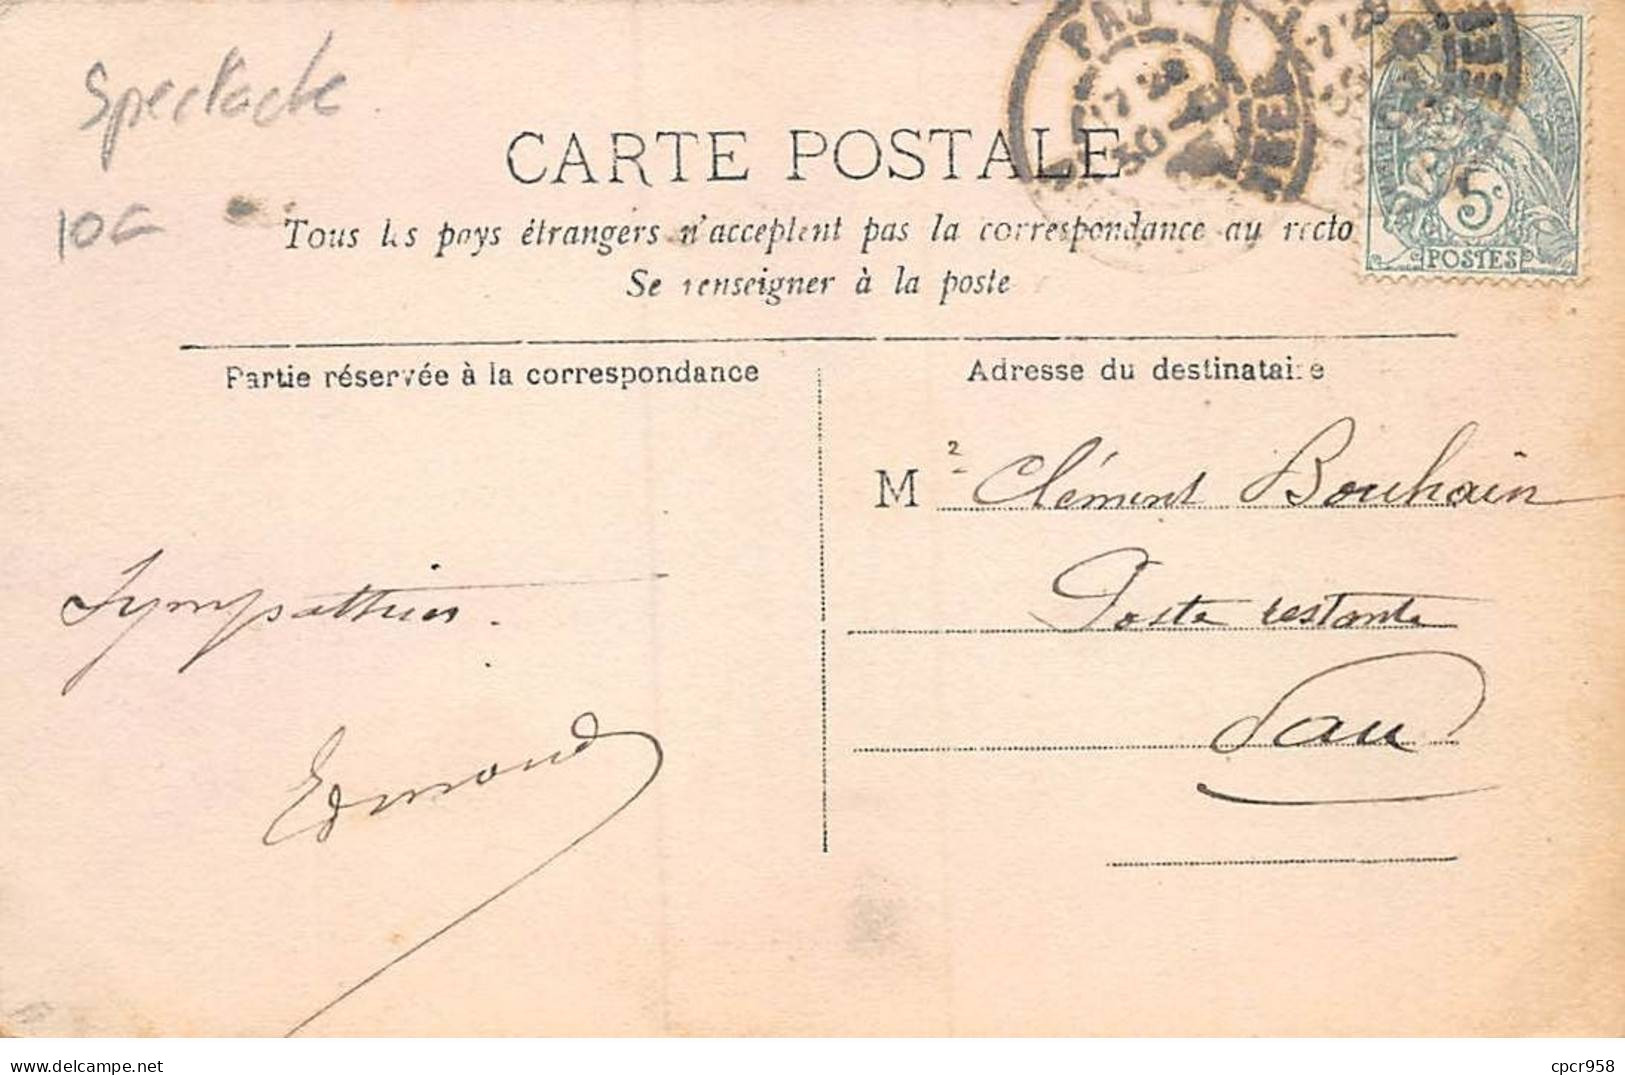 Spectacle
10c
CARTE POSTALE
Tous les pays étrangers n'acceptent pas la correspondance au recto
Se renseigner à la poste
Partie réservée à la correspondance
Adresse du destinataire
M Clément Bouhain
Poste restante
Pau
Sympathies.
Edmond
PAU
17 28
30
5c
POSTES
cpcr958